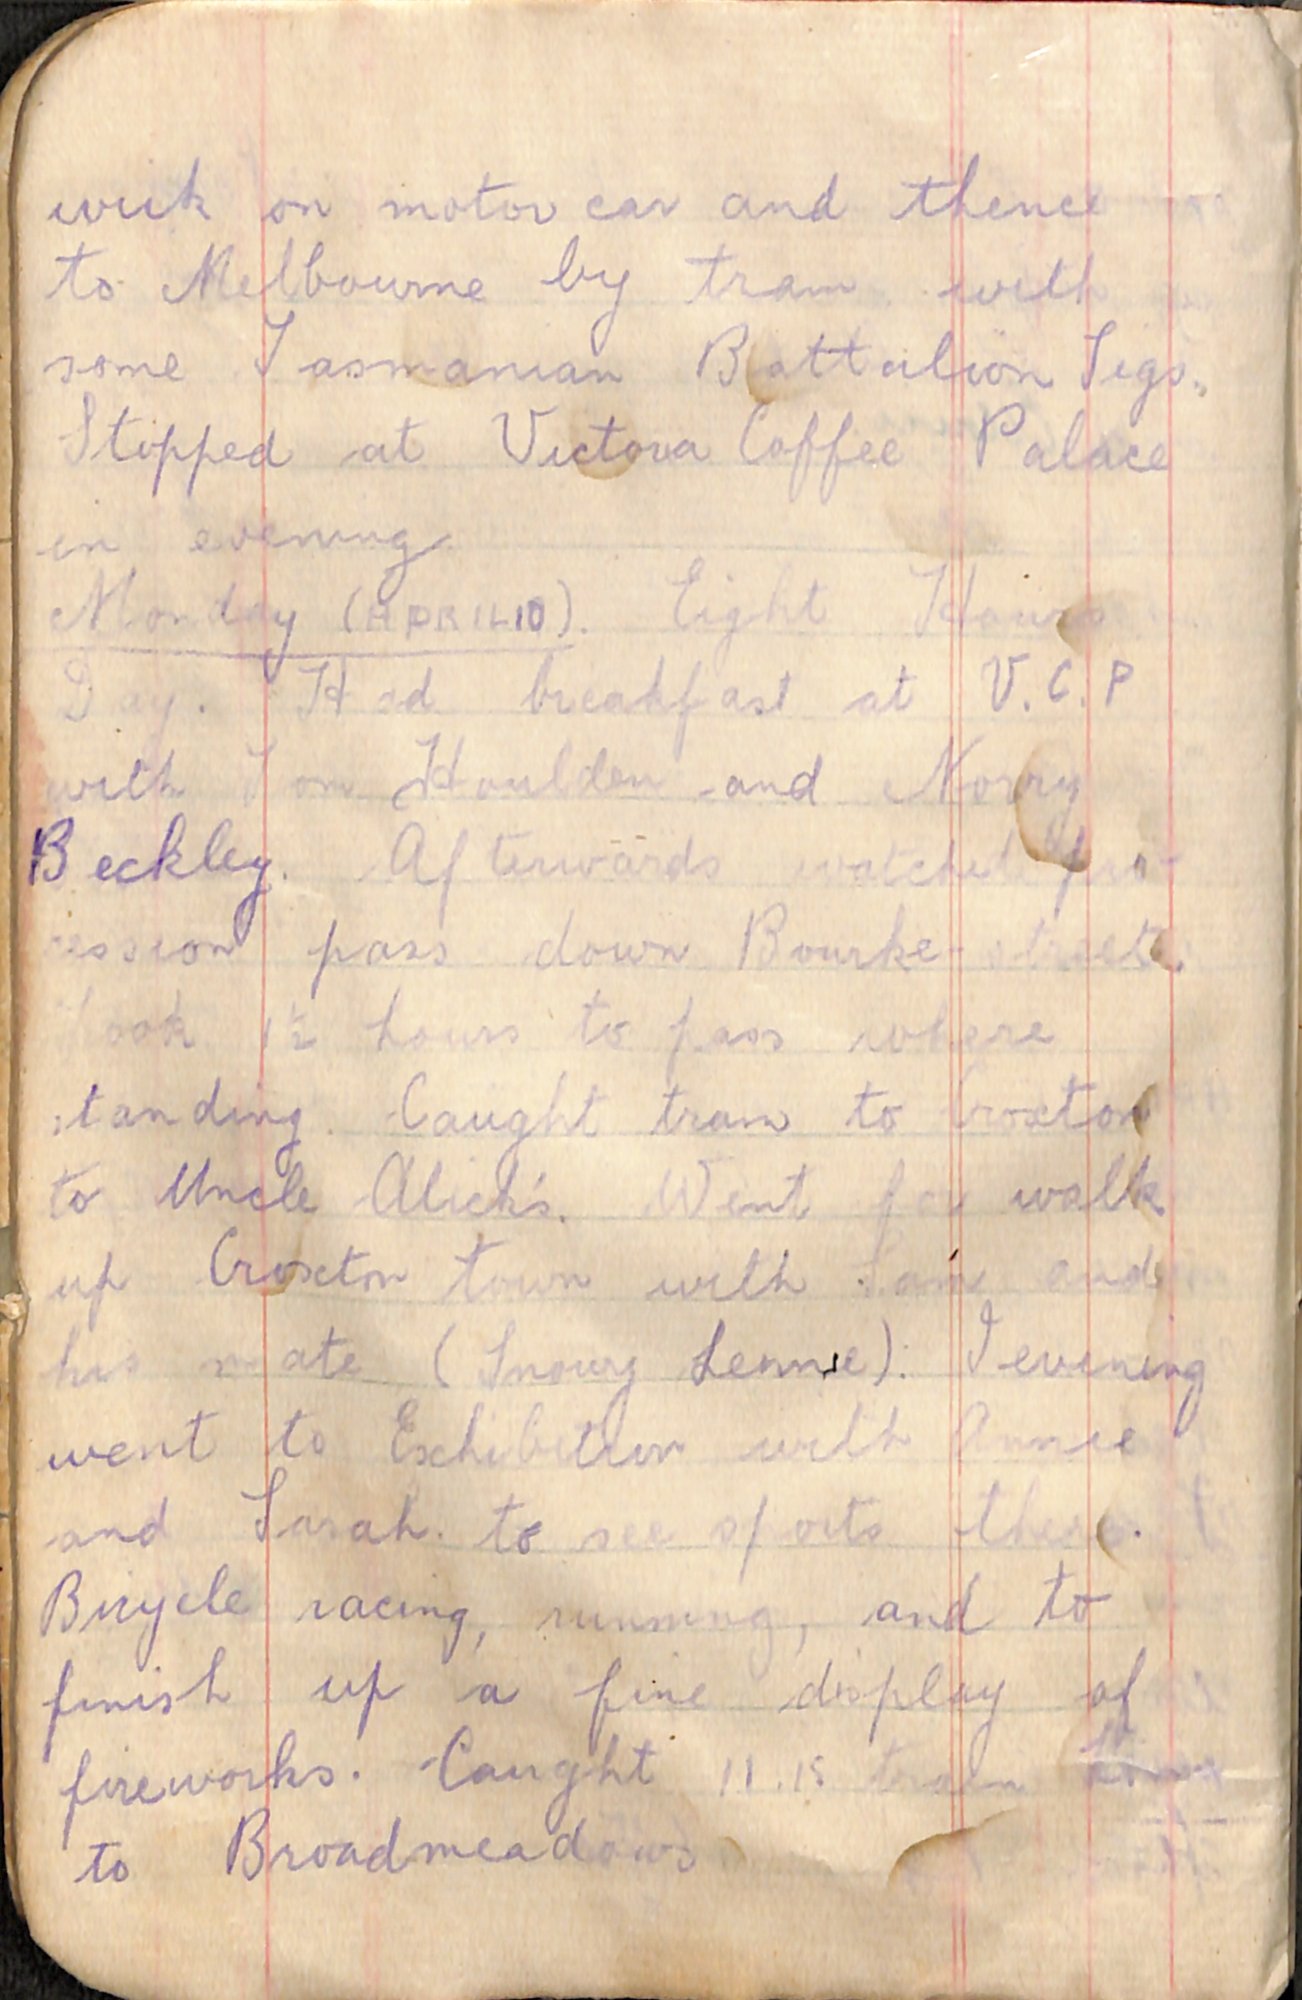 wick on motor car and thence
to Melbourne by tram with
some Tasmanian Battalion Sigs.
Stopped at Victoria Coffee Palace
in evening.
Monday (APRIL 10). Eight Hours
Day. Had breakfast at V.C.P
with Tom Houlden and Norry
Beckley. Afterwards watched pro-
cession pass down Bourke street.
Took 1½ hours to pass where
standing. Caught tram to Croxton
to Uncle Alick's. Went for walk
up Croxton town with Sam and
his mate (Snowy Lennie). I evening
went to Exhibition with Annie
and Sarah. to see sports there.
Bicycle racing, running, and to
finish up a fine display of
fireworks. Caught 11.15 train
to Broadmeadows